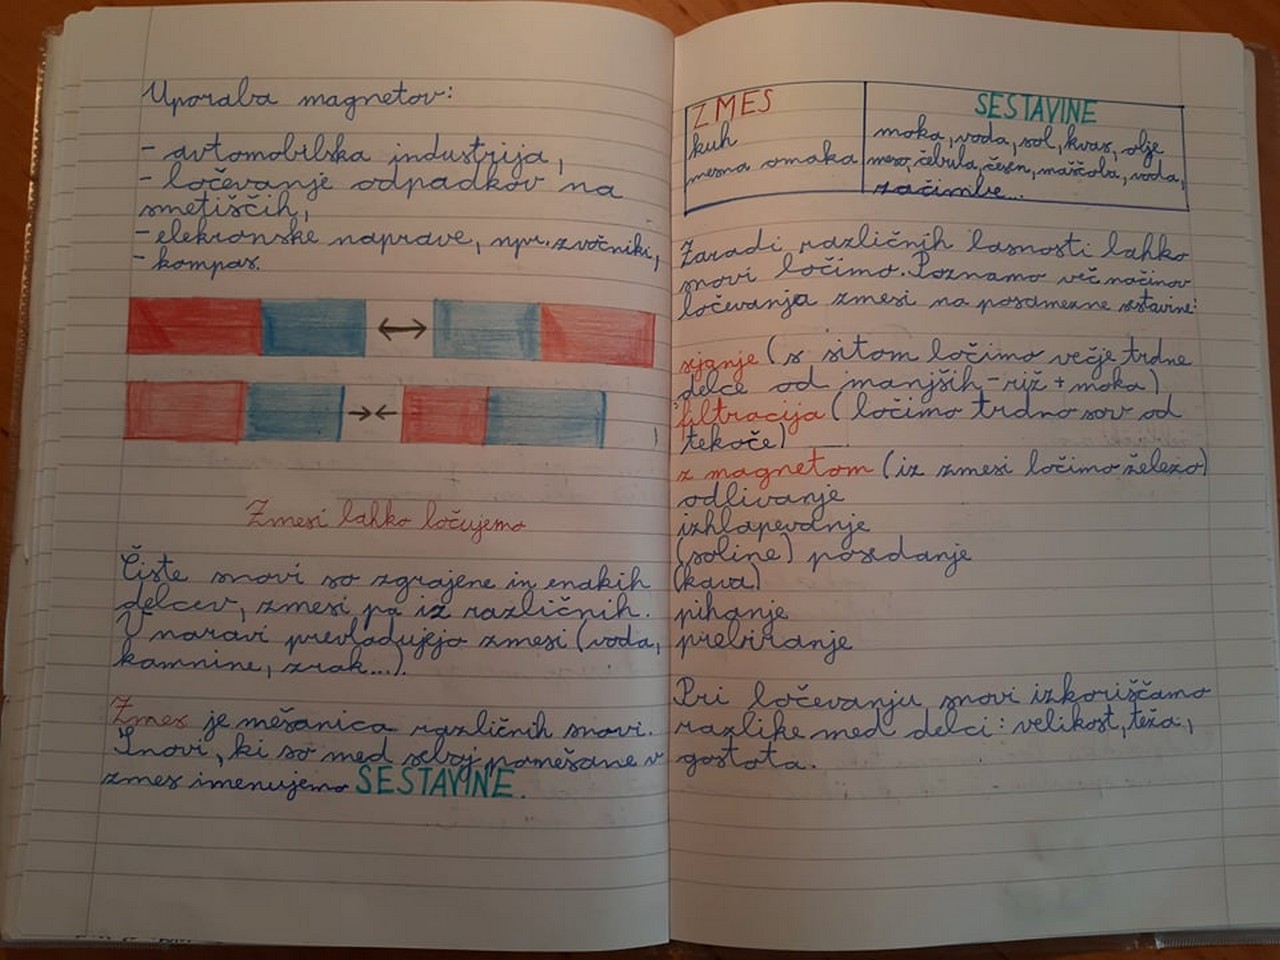 Uporaba magnetov:
- avtomobilska industrija,
- ločevanje odpadkov na
smetiščih,
- elekronske naprave, npr. zvočniki,
- kompas.
Zmesi lahko ločujemo
Čiste snovi so zgrajene in enakih
delcev, zmesi pa iz različnih.
V naravi prevladujejo zmesi (voda,
kamnine, zrak...).
Zmes je mešanica različnih snovi.
Snovi, ki so med seboj pomešane v
zmes imenujemo SESTAVINE.
ZMES
kuh
mesna omaka
SESTAVINE
moka, voda, sol, kvas, olje
meso, čebula, česen, maščoba, voda,
začimbe...
Zaradi različnih lasnosti lahko
snovi ločimo. Poznamo več načinov
ločevanja zmesi na posamezne sestavine:
sejanje (s sitom ločimo večje trdne
delce od manjših - riž + moka)
filtracija (ločimo trdno sov od
tekoče)
z magnetom (iz zmesi ločimo železo)
odlivanje
izhlapevanje
(soline) posedanje
(kava)
pihanje
prebiranje
Pri ločevanju snovi izkoriščamo
razlike med delci: velikost, teža,
gostota.